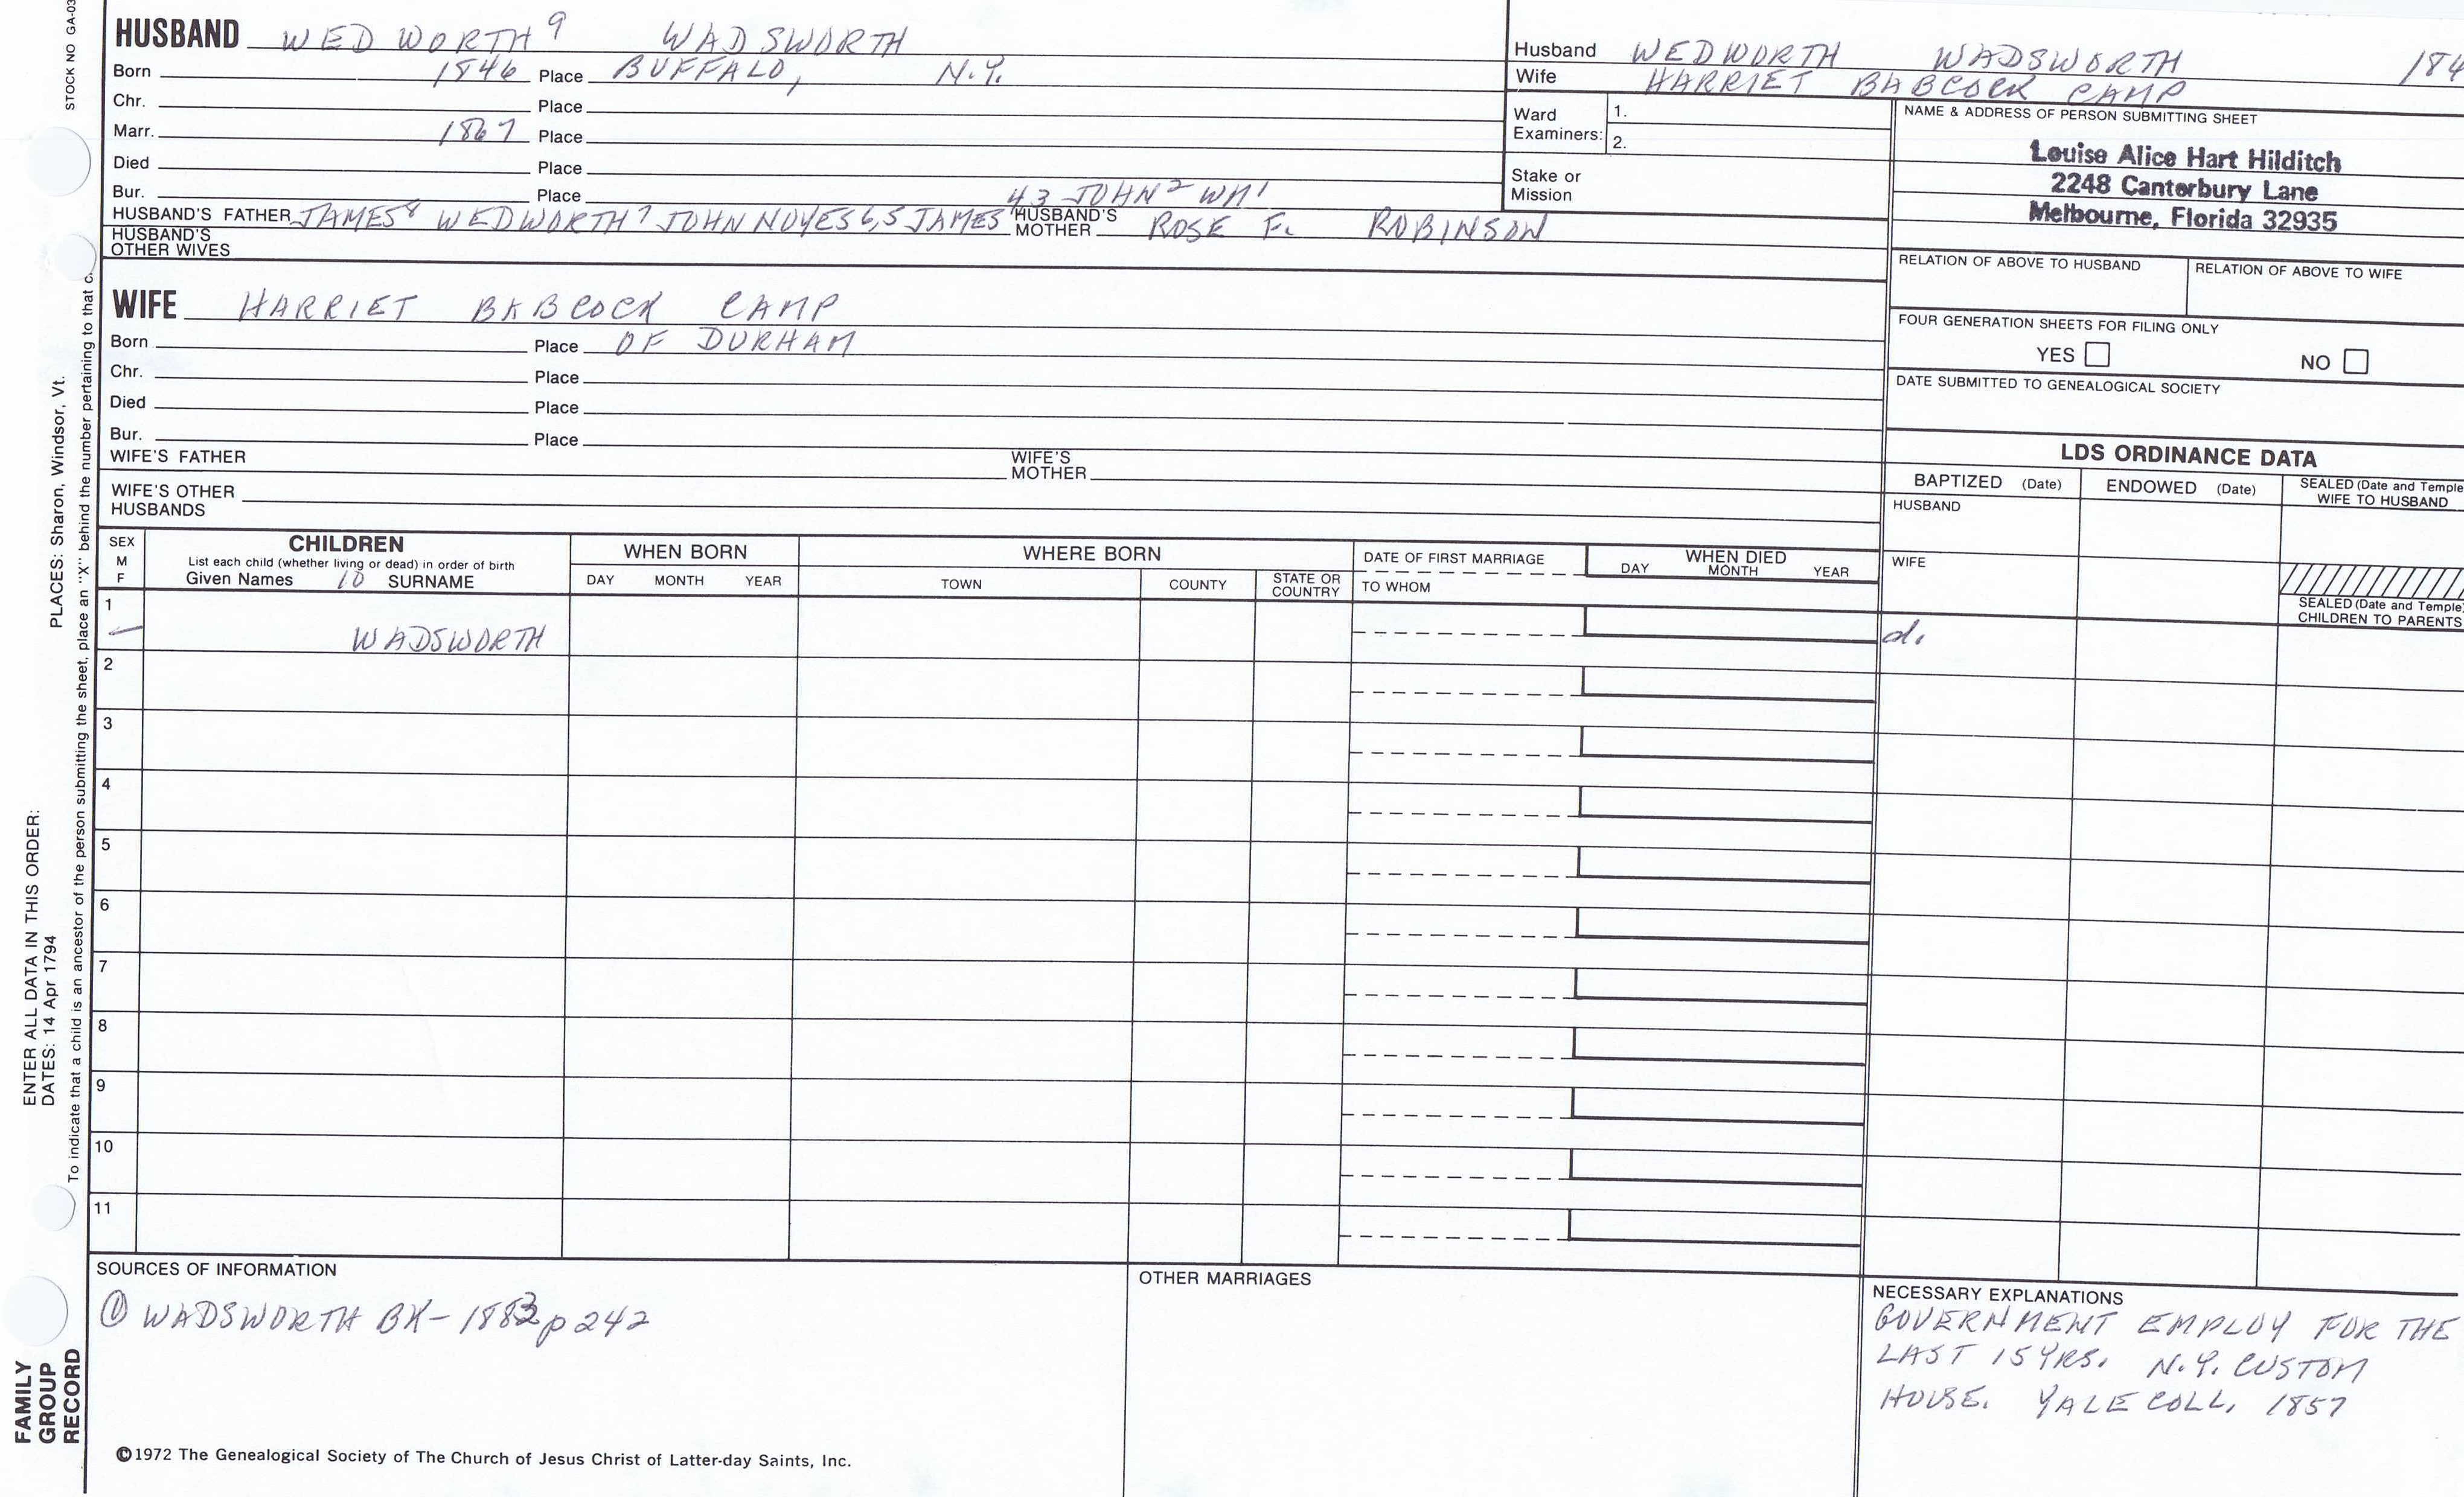 STOCK NO GA-03
HUSBAND WEDWORTH⁹ WADSWORTH
Born 1846 Place BUFFALO, N.Y.
Chr. Place
Marr. 1867 Place
Died Place
Bur. Place
43 JOHN² WM¹
HUSBAND'S FATHER JAMES⁸ WEDWORTH⁷ JOHN NOYES 6,5 JAMES HUSBAND'S MOTHER ROSE F. ROBINSON
HUSBAND'S OTHER WIVES
WIFE HARRIET BABCOCK CAMP
Born Place OF DURHAM
Chr. Place
Died Place
Bur. Place
WIFE'S FATHER WIFE'S MOTHER
WIFE'S OTHER HUSBANDS
Husband WEDWORTH WADSWORTH 184
Wife HARRIET BABCOCK CAMP
Ward Examiners: 1.
2.
Stake or Mission
NAME & ADDRESS OF PERSON SUBMITTING SHEET
Louise Alice Hart Hilditch
2248 Canterbury Lane
Melbourne, Florida 32935
RELATION OF ABOVE TO HUSBAND RELATION OF ABOVE TO WIFE
FOUR GENERATION SHEETS FOR FILING ONLY
YES NO
DATE SUBMITTED TO GENEALOGICAL SOCIETY
LDS ORDINANCE DATA
BAPTIZED (Date) ENDOWED (Date) SEALED (Date and Temple
WIFE TO HUSBAND
HUSBAND
WIFE
SEALED (Date and Temple)
CHILDREN TO PARENTS
SEX M F
CHILDREN
List each child (whether living or dead) in order of birth
Given Names 10 SURNAME
WHEN BORN
DAY MONTH YEAR
WHERE BORN
TOWN COUNTY STATE OR COUNTRY
DATE OF FIRST MARRIAGE
TO WHOM
WHEN DIED
DAY MONTH YEAR
1
WADSWORTH d.
2
3
4
5
6
7
8
9
10
11
SOURCES OF INFORMATION
① WADSWORTH BK - 1883 p 242
OTHER MARRIAGES
NECESSARY EXPLANATIONS
GOVERNMENT EMPLOY FOR THE
LAST 15 YRS. N.Y. CUSTOM
HOUSE. YALE COLL, 1857
©1972 The Genealogical Society of The Church of Jesus Christ of Latter-day Saints, Inc.
FAMILY
GROUP
RECORD
ENTER ALL DATA IN THIS ORDER:
DATES: 14 Apr 1794
PLACES: Sharon, Windsor, Vt.
To indicate that a child is an ancestor of the person submitting the sheet, place an "X" behind the number pertaining to that c